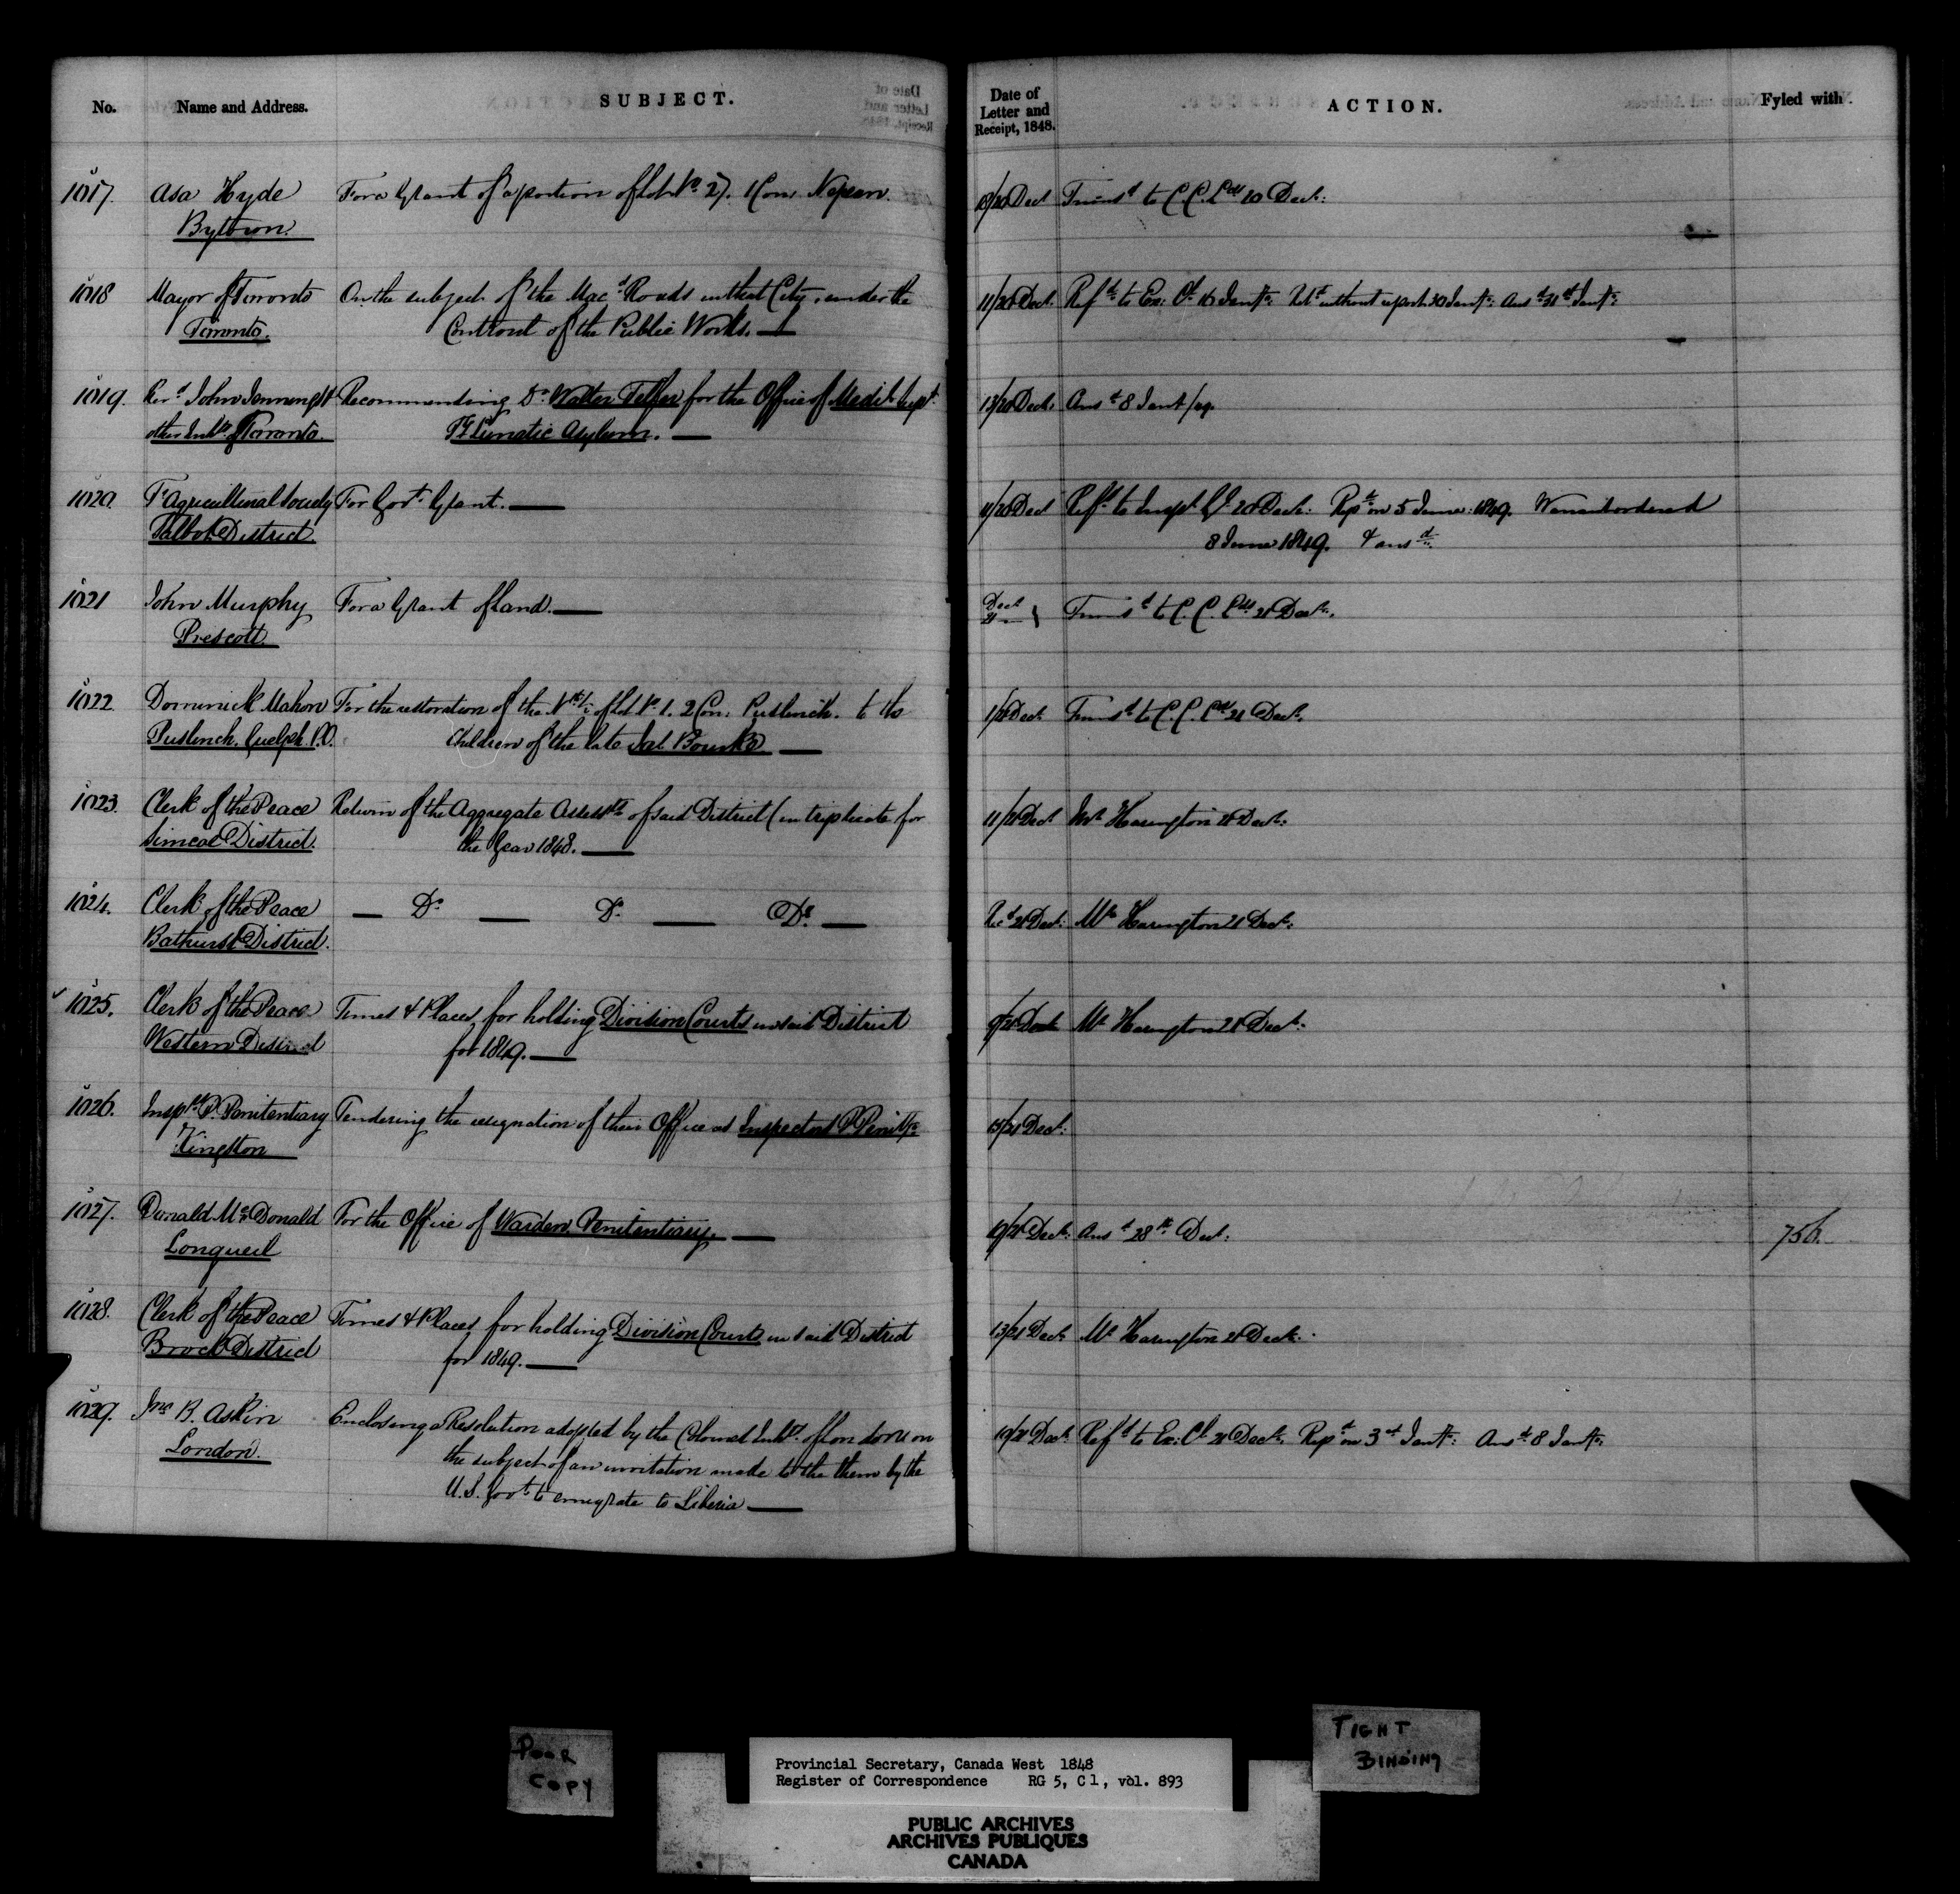 No. Name and Address. SUBJECT. Date of Letter and Receipt, 1848. ACTION. Fyled with
1017. Asa Hyde For a Grant of a portion of Lot No. 27. 1 Con. Nepean. 18/20 Dect Transd to C.C. Lds 20 Dect:
Bytown.
1018 Mayor of Toronto On the subject of the Macd Roads in that City, under the 11/20 Dect. Refd to Ex: Cl 16 Jany: Retd without report 30 Jany: Ansd 31st Jany:
Toronto. Controul of the Public Works.
1019. Revd John Jennings & Recommending Dr. Walter Telfer for the Office of Medil Supt. 13/20 Dect. Ansd 8 Jany/49.
other Inhts of Toronto. P. Lunatic Asylum.
1020. Tr Agricultural Society For Govt. Grant. 11/20 Dect Refd to Inspr Gl 20 Dect: Repd on 5 June 1849. Warrant ordered
Talbot District. 8 June 1849. & ansd.
1021 John Murphy For a Grant of Land. Dect 21 Transd to C.C. Lds 21 Dect.
Prescott.
1022 Dominick Mahon For the restoration of the ½ of Lot No. 1. 2 Con. Puslinch. to the 1/21 Dect Transd to C.C. Lds 21 Dect.
Puslinch. Guelph P.O. Children of the late Jas. Bourke
1023. Clerk of the Peace Return of the Aggregate Assessts of said District (in triplicate for 11/21 Dect Mr Harington 21 Dect:
Simcoe District. the Year 1848.
1024. Clerk of the Peace Do Do Do Recd 21 Dect: Mr Harington 21 Dect:
Bathurst District.
1025. Clerk of the Peace Times & Places for holding Division Courts in said District 9/21 Dect Mr Harington 21 Dect:
Western District for 1849.
1026. Insprs P. Penitentiary Tendering the resignation of their Office as Inspectors P. Penity: 15/21 Dect:
Kingston
1027. Donald McDonald For the Office of Warden Penitentiary. 19/21 Dect: Ansd 28th Dect. 756.
Longueil
1028. Clerk of the Peace Times & Places for holding Division Courts in said District 13/21 Dect Mr Harington 21 Dect:
Brock District for 1849.
1029. Jno B. Askin Enclosing a Resolution adopted by the Colored Inhts. of London on 19/21 Dect: Refd to Ex: Cl 21 Dect. Repd on 3rd Jany: Ansd 8 Jany:
London. the subject of an invitation made to the them by the
U.S. Govt to emigrate to Liberia
POOR
COPY
TIGHT
BINDING
Provincial Secretary, Canada West 1848
Register of Correspondence RG 5, C1, vol. 893
PUBLIC ARCHIVES
ARCHIVES PUBLIQUES
CANADA